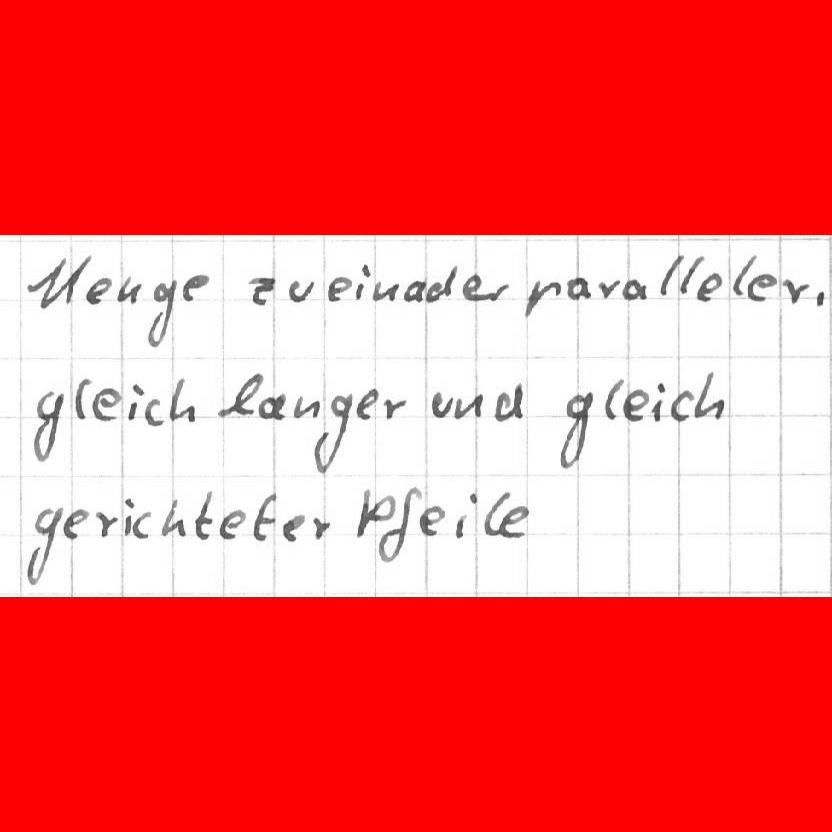 Menge zueinader paralleler,
gleich langer und gleich
gerichteter Pfeile